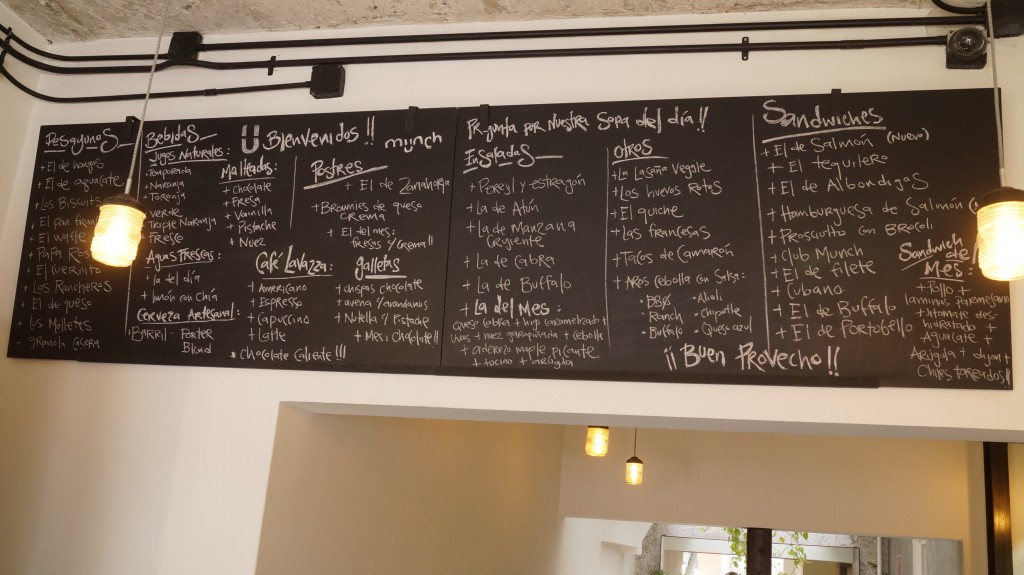 Desayunos
+ El de hongos
+ El de aguacate
+ Los Biscuits
+ El Pan
+ El
+ Papa
+ El Cuernito
+ Los Rancheros
+ El de queso
+ Los Molletes
+ Granola
Bebidas
Jugos Naturales:
Temporada
Naranja
Toronja
Verde
Triple Naranja
Fresco
Aguas Frescas:
+ la del día
+ Limón con Chía
Cerveza Artesanal:
BARRIL: Porter
Blond
Ü Bienvenidos !!
münch
Malteadas:
+ Chocolate
+ Fresa
+ Vainilla
+ Pistache
+ Nuez
Postres
+ El de Zanahoria
+ Brownies de queso
crema
+ El del mes:
fresas y Crema!!
Café Lavazza:
+ Americano
+ Espresso
+ Capuccino
+ Latte
* Chocolate Caliente !!!
galletas
+ chispas chocolate
+ avena y arandanos
+ Nutella y Pistache
+ Mes: Chocolate!!
Pregunta por Nuestra Sopa del día!!
Ensaladas
+ Perejil y estragón
+ La de Atún
+ La de Manzana
Crujiente
+ La de Cabra
+ La de Buffalo
+ La del Mes:
Queso Cabra + caramelizado +
uvas + nuez garapiñada + cebolla
+ aderezo maple picante
+ tocino + arúgula
Otros
+ La Lasaña Vegole
+ Los huevos Rotos
+ El quiche
+ Las francesas
+ Tacos de Camarón
+ Aros Cebolla con Salsa:
· BBQ · Alioli
· Ranch · chipotle
· Buffalo · Queso azul
¡¡ Buen Provecho !!
Sandwiches
+ El de Salmón (Nuevo)
+ El tequilero
+ El de Albondigas
+ Hamburguesa de Salmón
+ Prosciutto con Brócoli
+ Club Munch
+ El de filete
+ Cubano
+ El de Buffalo
+ El de Portobello
Sandwich del
Mes:
+ Pollo +
laminas parmesano
+ tomate des-
hidratado +
Aguacate +
Arúgula + dijon +
Chiles toreados!!